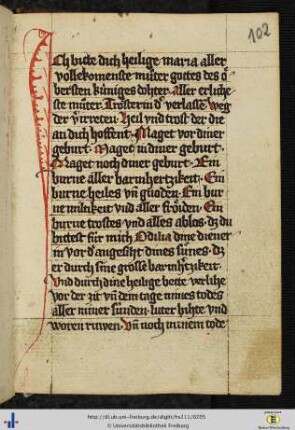 102
Ich bitte dich heilige maria aller
vollekomenste můter gottes des o
bersten kůniges dohter. Aller erliche
ste můter. Trosterin d' verlasse. weg
der v'irreten. Heil vnd trost der die
an dich hoffent. Maget vor diner
geburt. Maget in diner geburt.
Maget noch diner geburt. Ein
burne aller barmhertzikeit. Ein
burne heiles vn̄ gnoden. Ein bur
ne miltikeit vnd aller frőiden. Ein
burne trostes vnd alles ablos. dz du
bittest für mich Odilia dine diener
in vor d' angesiht dines sunes. dz
er durch sine grosse barmh'tzikeit.
Vnd durch dine heilige bette verlihe
vor der zit vn̄ dem tage mines todes
aller miner sunden. luter bihte vnd
woren ruwen. Vn̄ noch minem tode
http://dl.ub.uni-freiburg.de/diglit/hs211/0205
© Universitätsbibliothek Freiburg